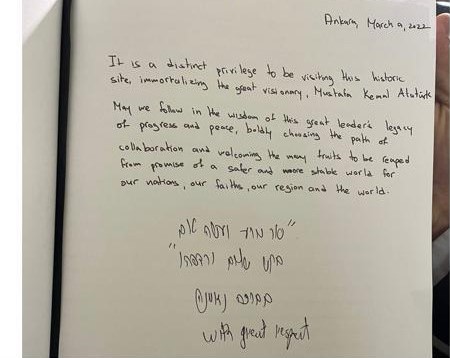 Ankara, March 9, 2022
It is a distinct privilege to be visiting this historic
site, immortalizing the great visionary, Mustafa Kemal Atatürk
May we follow in the wisdom of this great leader's legacy
of progress and peace, boldly choosing the path of
collaboration and welcoming the many fruits to be reaped
from promise of a safer and more stable world for
our nations, our faiths, our region and the world.
"סור מרע ועשה טוב
בקש שלום ורדפהו"
with great respect